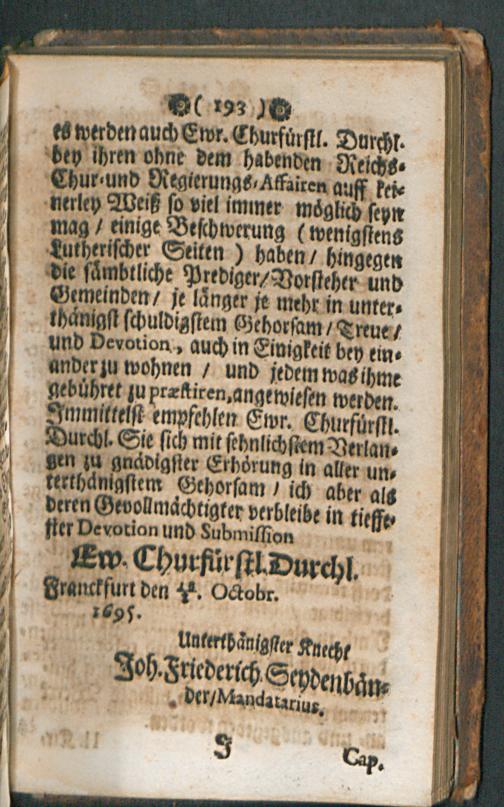 ( 193 )
es werden auch Ewr. Churfürstl. Durchl.
bey ihren ohne dem habenden Reichs-
Chur- und Regierungs-Affairen auff kei-
nerley Weiß so viel immer möglich seyn
mag / einige Beschwerung ( wenigstens
Lutherischer Seiten ) haben / hingegen
die sämbtliche Prediger / Vorsteher und
Gemeinden / je länger je mehr in unter-
thänigst schuldigstem Gehorsam / Treue /
und Devotion, auch in Einigkeit bey ein-
ander zu wohnen / und jedem was ihme
gebühret zu præstiren, angewiesen werden.
Immittelst empfehlen Ewr. Churfürstl.
Durchl. Sie sich mit sehnlichstem Verlan-
gen zu gnädigster Erhörung in aller un-
terthänigstem Gehorsam / ich aber als
deren Gevollmächtigter verbleibe in tieffe-
ster Devotion und Submission
Ew. Churfürstl. Durchl.
Franckfurt den Octobr.
1695.
Unterthänigster Knecht
Joh. Friederich Seydenbän-
der / Mandatarius.
J Cap.